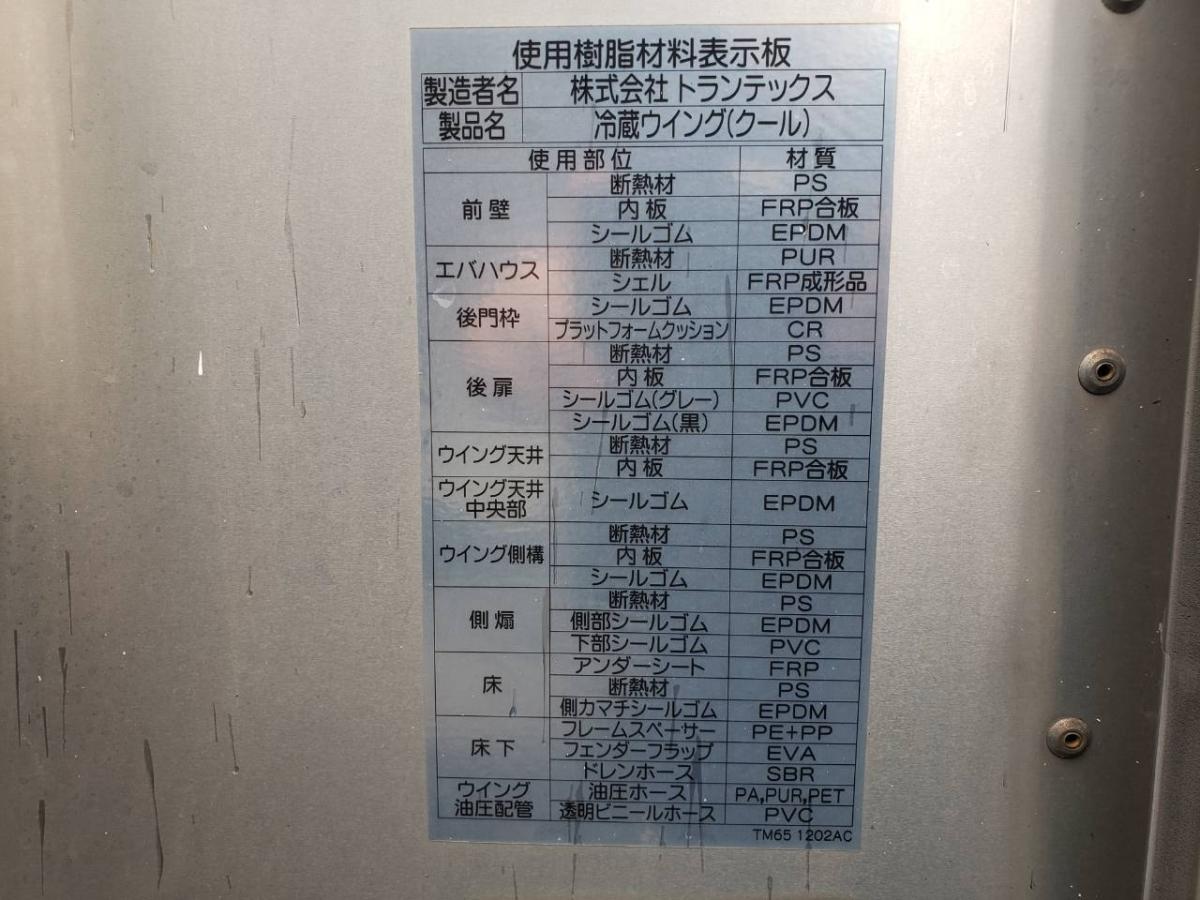 使用樹脂材料表示板
製造者名 株式会社トランテックス
製品名 冷蔵ウイング(クール)
使用部位 材質
前壁 断熱材 PS
内板 FRP合板
シールゴム EPDM
エバハウス 断熱材 PUR
シェル FRP成形品
後門枠 シールゴム EPDM
プラットフォームクッション CR
後扉 断熱材 PS
内板 FRP合板
シールゴム(グレー) PVC
シールゴム(黒) EPDM
ウイング天井 断熱材 PS
内板 FRP合板
ウイング天井
中央部 シールゴム EPDM
ウイング側構 断熱材 PS
内板 FRP合板
シールゴム EPDM
側煽 断熱材 PS
側部シールゴム EPDM
下部シールゴム PVC
床 アンダーシート FRP
断熱材 PS
側カマチシールゴム EPDM
床下 フレームスペーサー PE+PP
フェンダーフラップ EVA
ドレンホース SBR
ウイング
油圧配管 油圧ホース PA,PUR,PET
透明ビニールホース PVC
TM65 1202AC